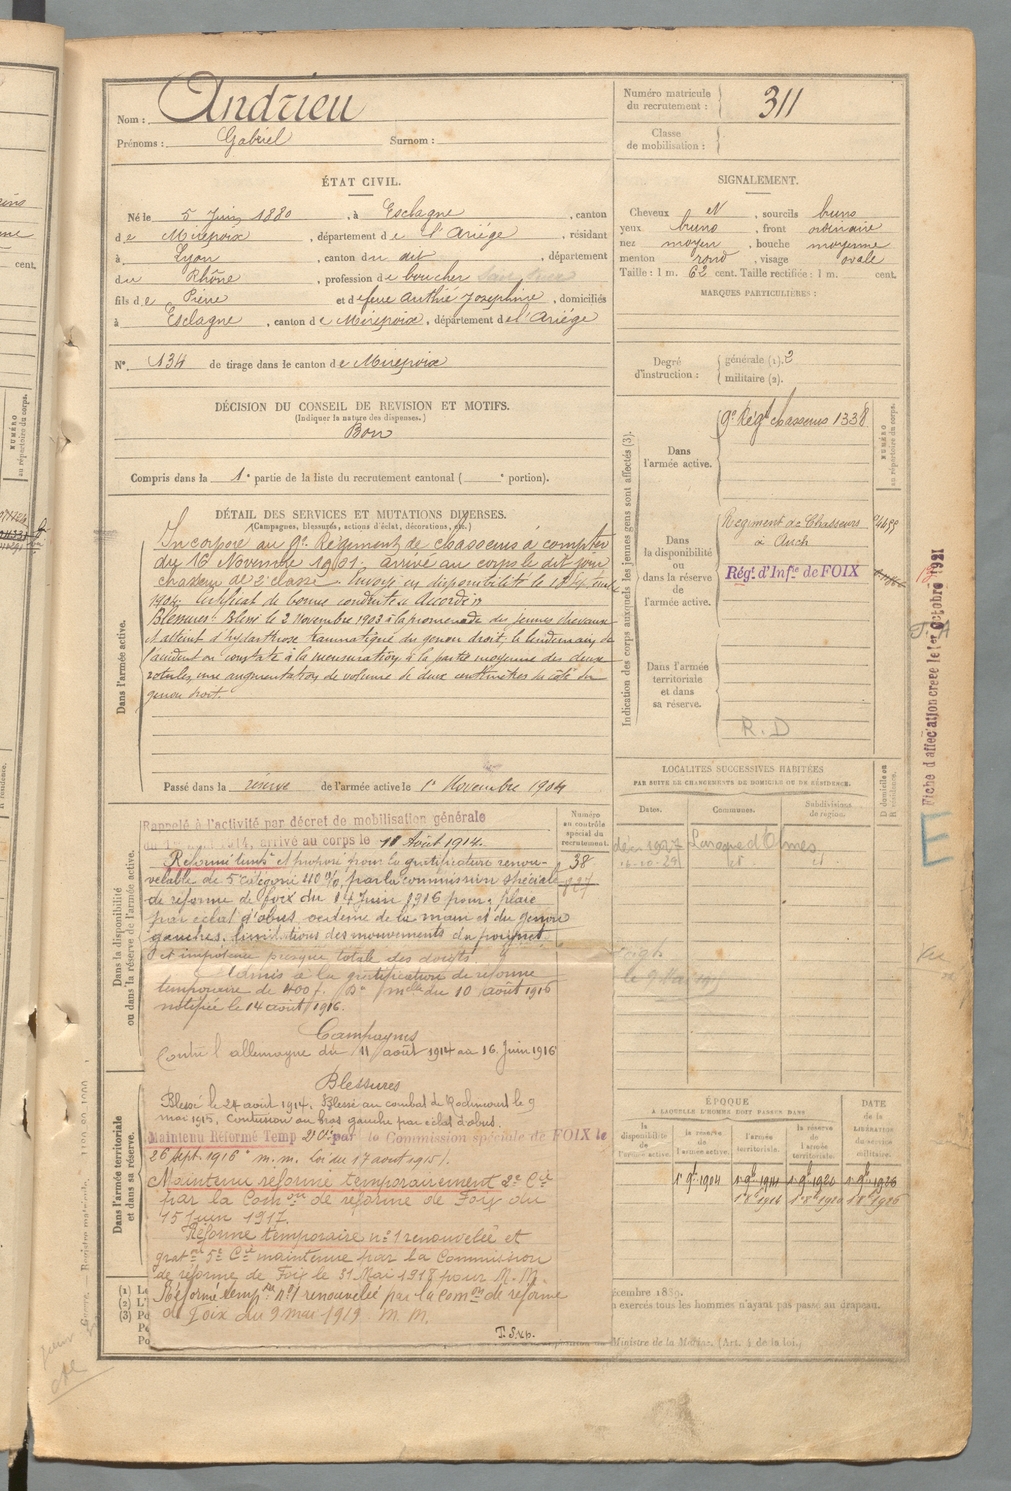 Nom : Andrieu
Prénoms : Gabriel Surnom :
Numéro matricule du recrutement : 311
Classe de mobilisation :
ÉTAT CIVIL.
Né le 5 Juin 1880, à Esclagne, canton
de Mirepoix, département de l'Ariège, résidant
à Lyon, canton du dit, département
du Rhône, profession de boucher
fils de Pierre et de feue Authié Joséphine, domiciliés
à Esclagne, canton de Mirepoix, département de l'Ariège
N° 134 de tirage dans le canton de Mirepoix
SIGNALEMENT.
Cheveux N, sourcils bruns
yeux bruns, front ordinaire
nez moyen, bouche moyenne
menton rond, visage ovale
Taille : 1 m. 62 cent. Taille rectifiée : 1 m. cent.
MARQUES PARTICULIÈRES :
Degré d'instruction : générale (1). 2
militaire (2).
DÉCISION DU CONSEIL DE REVISION ET MOTIFS.
(Indiquer la nature des dispenses.)
Bon
Compris dans la 1e partie de la liste du recrutement cantonal ( e portion).
DÉTAIL DES SERVICES ET MUTATIONS DIVERSES.
(Campagnes, blessures, actions d'éclat, décorations, etc.)
Dans l'armée active.
Incorporé au 9e Régiment de chasseurs à compter
du 16 Novembre 1901, arrivé au corps le dit jour
chasseur de 2e classe. Envoyé en disponibilité le
1904. Certificat de bonne conduite Accordé
Blessures: Blessé le 2 Novembre 1903 à la promenade des jeunes chevaux
et atteint d'hydarthrose traumatique du genou droit; le lendemain de
l'accident on constate à la mensuration à la partie moyenne des deux
rotules, une augmentation de volume de deux centimètres du côté du
genou droit.
Passé dans la réserve de l'armée active le 1er Novembre 1904
Indication des corps auxquels les jeunes gens sont affectés (3).
NUMÉRO au répertoire du corps.
Dans l'armée active.
9e Régt chasseurs 1338
Dans la disponibilité ou dans la réserve de l'armée active.
Régiment de Chasseurs
à Auch
Régt. d'Infie de FOIX
Dans l'armée territoriale et dans sa réserve.
R.D
Fiche d'affectation créée le 1er Octobre 1921
E
Dans la disponibilité ou dans la réserve de l'armée active.
Numéro au contrôle spécial du recrutement.
38
827
Rappelé à l'activité par décret de mobilisation générale
du 1er août 1914, arrivé au corps le 11 Août 1914.
Réformé tempre et proposé pour la gratification renou-
velable de 5e catégorie 40%, par la commission spéciale
de réforme de foix du 14 Juin 1916 pour; plaie
par éclat d'obus, oedème de la main et du genou
gauches, limitations des mouvements du poignet
et impotence presque totale des doigts.
Admis à la gratification de réforme
temporaire de 400f. Don mlle du 10 août 1916
notifiée le 14 août 1916.
Campagnes
Contre l'allemagne du 11 août 1914 au 16 Juin 1916
Blessures
Blessé le 24 août 1914. Blessé au combat de le 9
mai 1915, Contusion au bras gauche par éclat d'obus.
Maintenu Réformé Temp 2e Cie par la Commission spéciale de FOIX le
26 sept. 1916 m.m. loi du 17 août 1915).
Maintenu réformé temporairement 2e Cie
par la Comon de réforme de Foix du
15 juin 1917.
Réforme temporaire n° 1 renouvelée et
graton 5e Cie maintenue par la Commission
de réforme de Foix le 31 Mai 1918 pour M.M.
Réformé tempre n° 1 renouvelée par la Comon de réforme
de Foix du 9 mai 1919 M.M.
T.S.v.p.
Dans l'armée territoriale et dans sa réserve.
LOCALITÉS SUCCESSIVES HABITÉES
PAR SUITE DE CHANGEMENTS DE DOMICILE OU DE RÉSIDENCE.
Dates. Communes. Subdivisions de région. D domicile ou R résidence.
Laroque d'Olmes
ÉPOQUE
A LAQUELLE L'HOMME DOIT PASSER DANS
la disponibilité de l'armée active.
la réserve de l'armée active.
l'armée territoriale.
la réserve de l'armée territoriale.
DATE de la LIBÉRATION du service militaire.
1er 9bre 1904 1er 9bre 1914 1er 9bre 1920 1er 9bre 1926
écembre 1889.
n exercés tous les hommes n'ayant pas passé au drapeau.
Ministre de la Marine. (Art. 4 de la loi.)